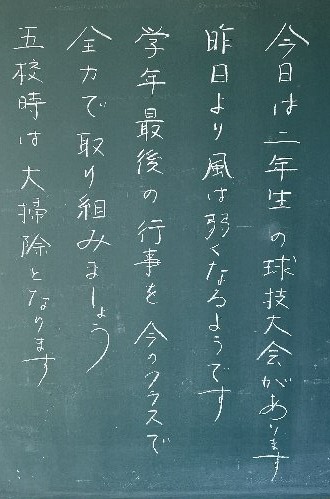 今日は二年生の球技大会があります
昨日より風は弱くなるようです
学年最後の行事を今のクラスで
全力で取り組みましょう
五校時は大掃除となります